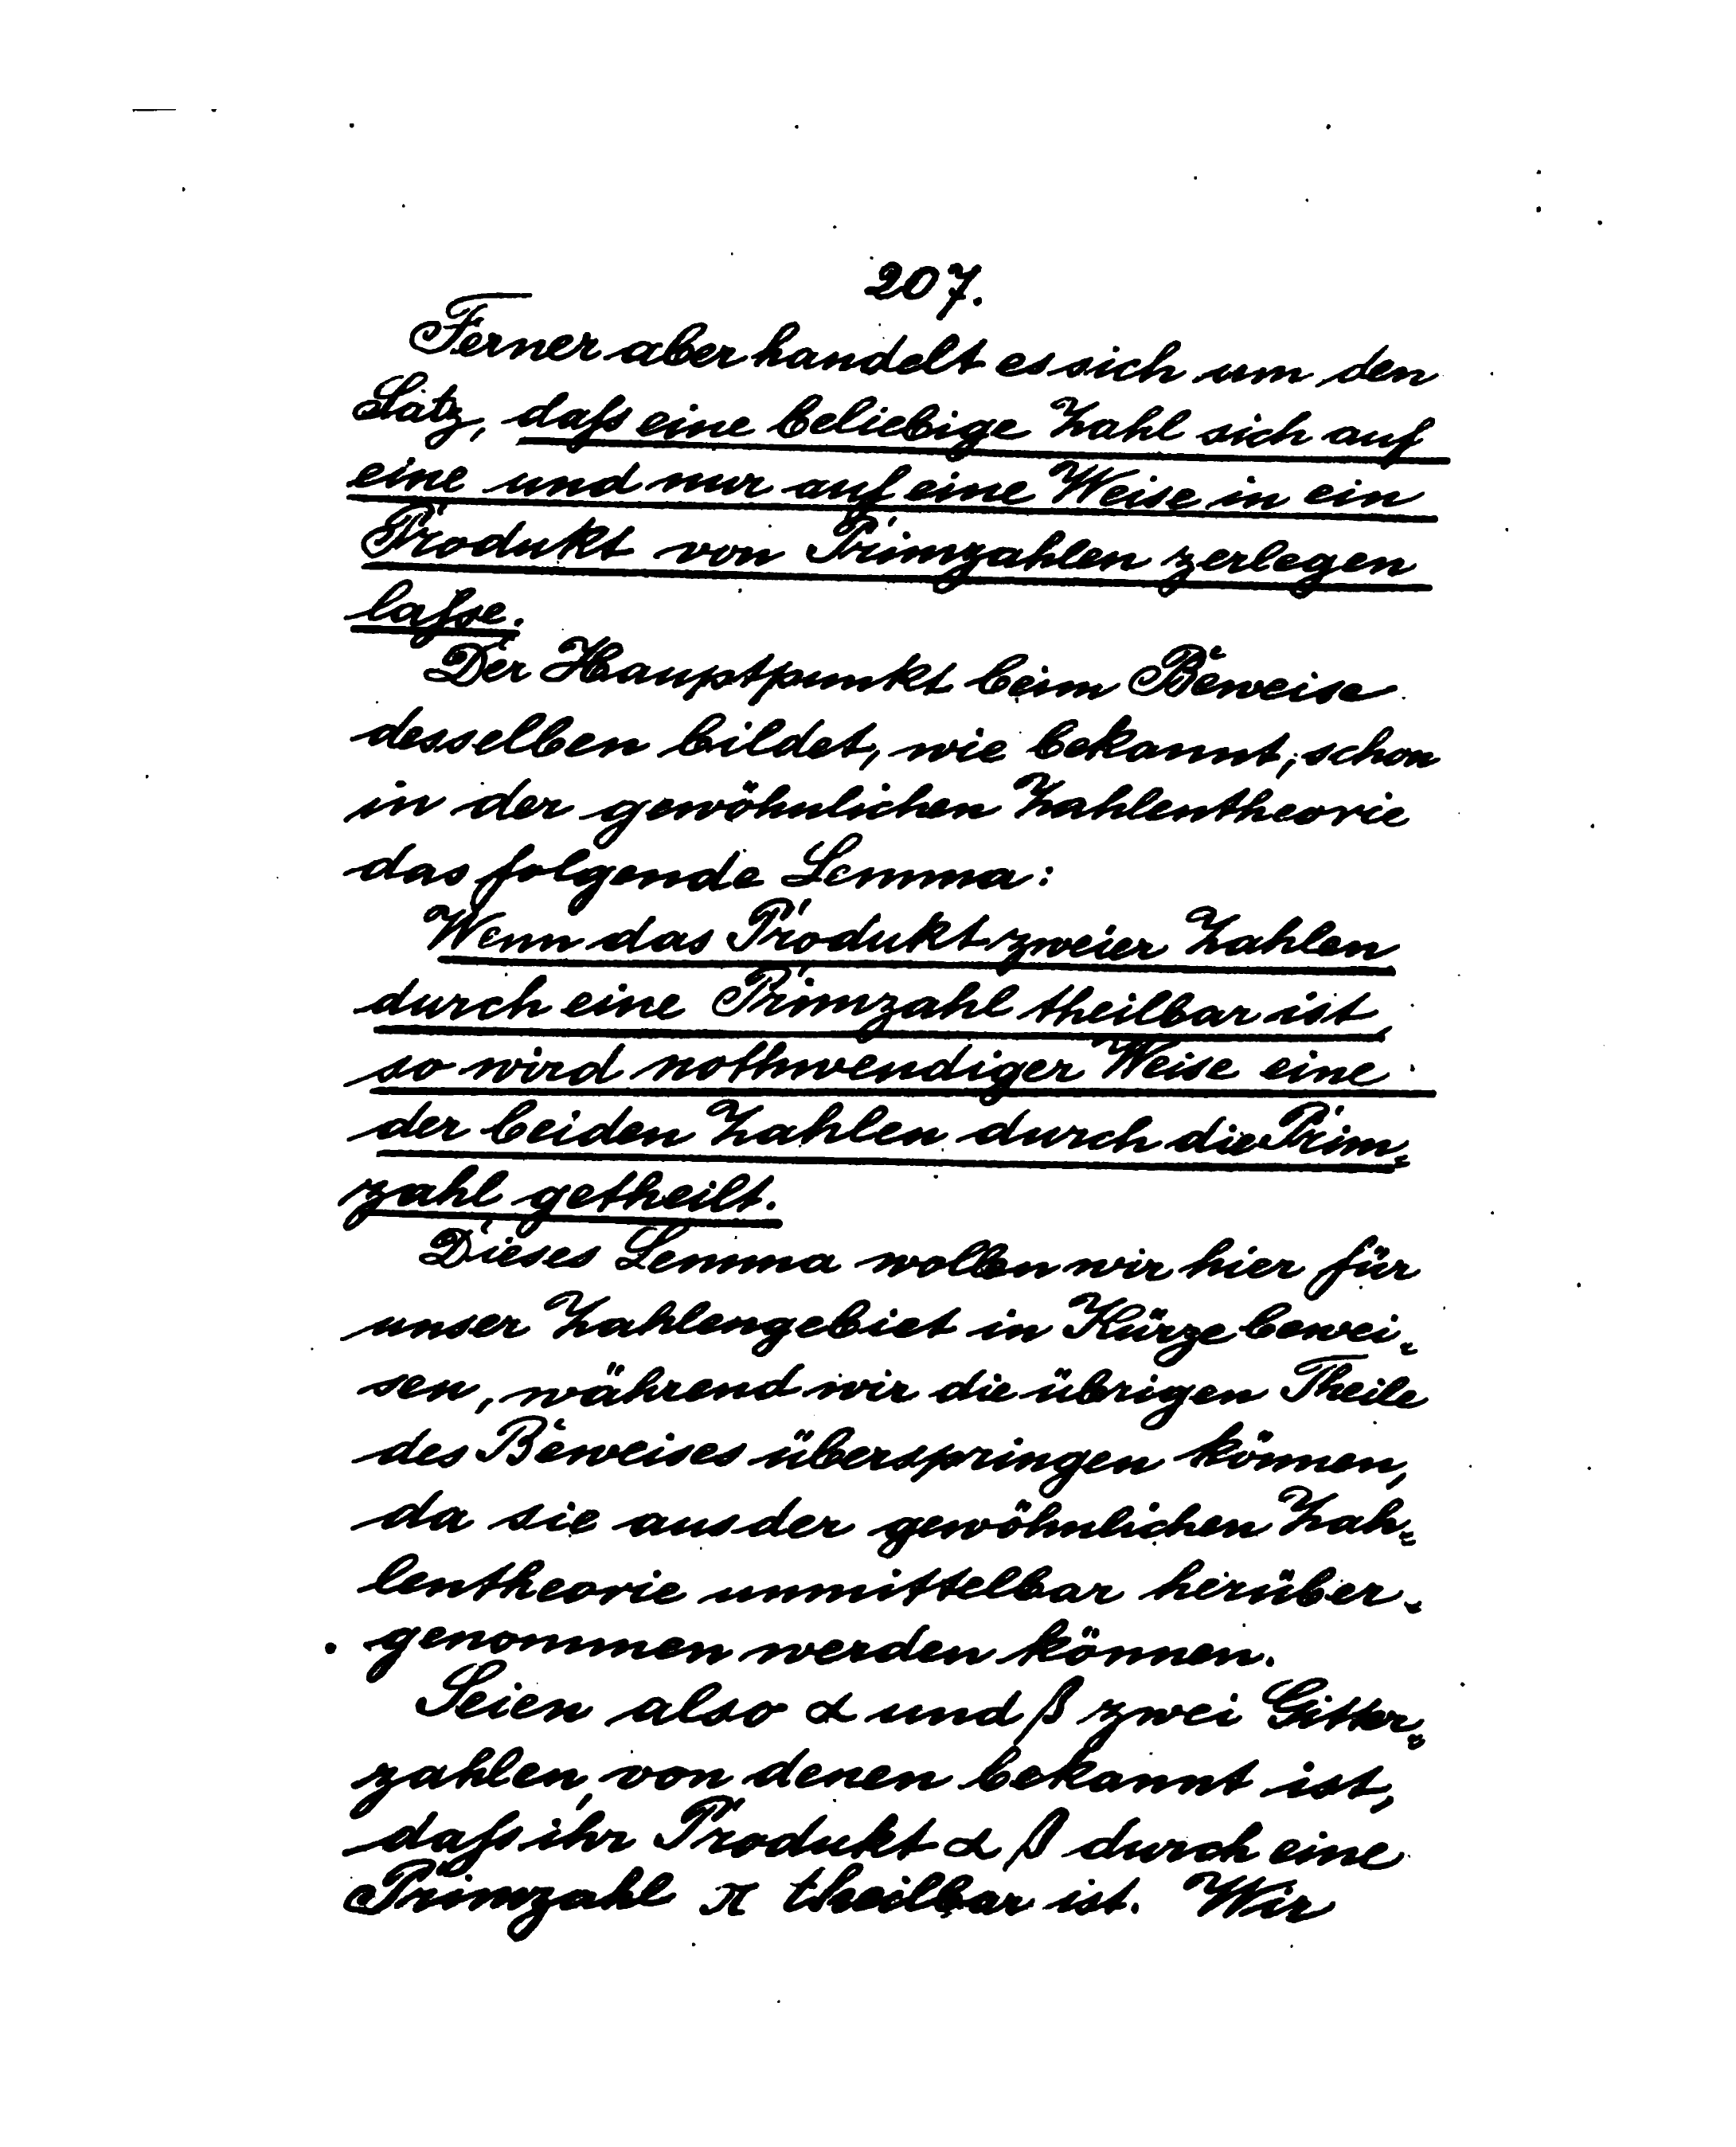 207.
Ferner aber handelt es sich um den
Satz, daſs eine beliebige Zahl sich auf
eine und nur auf eine Weise in ein
Produkt von Primzahlen zerlegen
laſse.
Der Hauptpunkt beim Beweise
desselben bildet, wie bekannt, schon
in der gewöhnlichen Zahlentheorie
das folgende Lemma:
Wenn das Produkt zweier Zahlen
durch eine Primzahl theilbar ist,
so wird nothwendiger Weise eine
der beiden Zahlen durch die Prim-
zahl getheilt.
Dieses Lemma wollen wir hier für
unser Zahlengebiet in Kürze bewei-
sen, während wir die übrigen Theile
des Beweises überspringen können,
da sie aus der gewöhnlichen Zah-
lentheorie unmittelbar herüber-
genommen werden können.
Seien also α und β zwei Gitter-
zahlen, von denen bekannt ist,
daſs ihr Produkt α β durch eine
Primzahl π theilbar ist. Wir